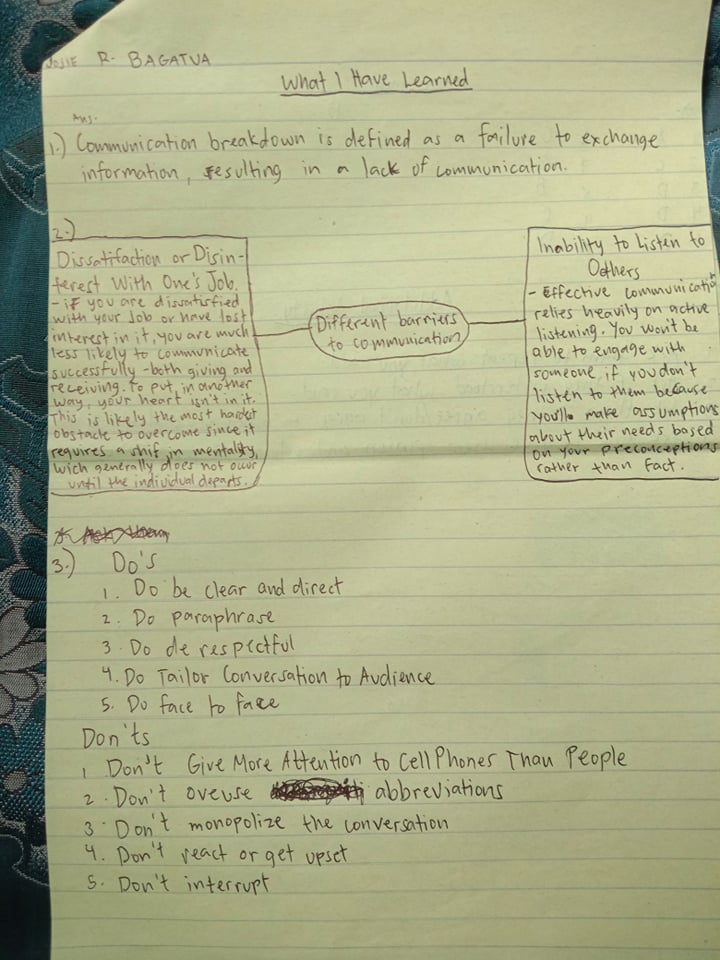 JOSIE R. BAGATUA
What I Have Learned
Ans.
1.) Communication breakdown is defined as a failure to exchange
information, resulting in a lack of communication.
2.)
Dissatifaction or Disin-
terest With One's Job.
- if you are dissatisfied
with your Job or have lost
interest in it, you are much
less likely to communicate
successfully - both giving and
receiving. To put, in another
way, your heart isn't in it.
This is likely the most hardest
obstacle to overcome since it
requires a shif in mentality,
wich generally does not occur
until the individual departs.
Different barriers
to communication
Inability to Listen to
Others
- Effective communicatio
relies heavily on active
listening. You won't be
able to engage with
someone if you don't
listen to them because
you'll make assumptions
about their needs based
on your preconceptions
rather than fact.
3.) Do's
1. Do be clear and direct
2. Do paraphrase
3. Do de respectful
4. Do Tailor Conversation to Audience
5. Do face to face
Don'ts
1 Don't Give More Attention to Cell Phones Than People
2. Don't oveuse abbreviations
3. Don't monopolize the conversation
4. Don't react or get upset
5. Don't interrupt